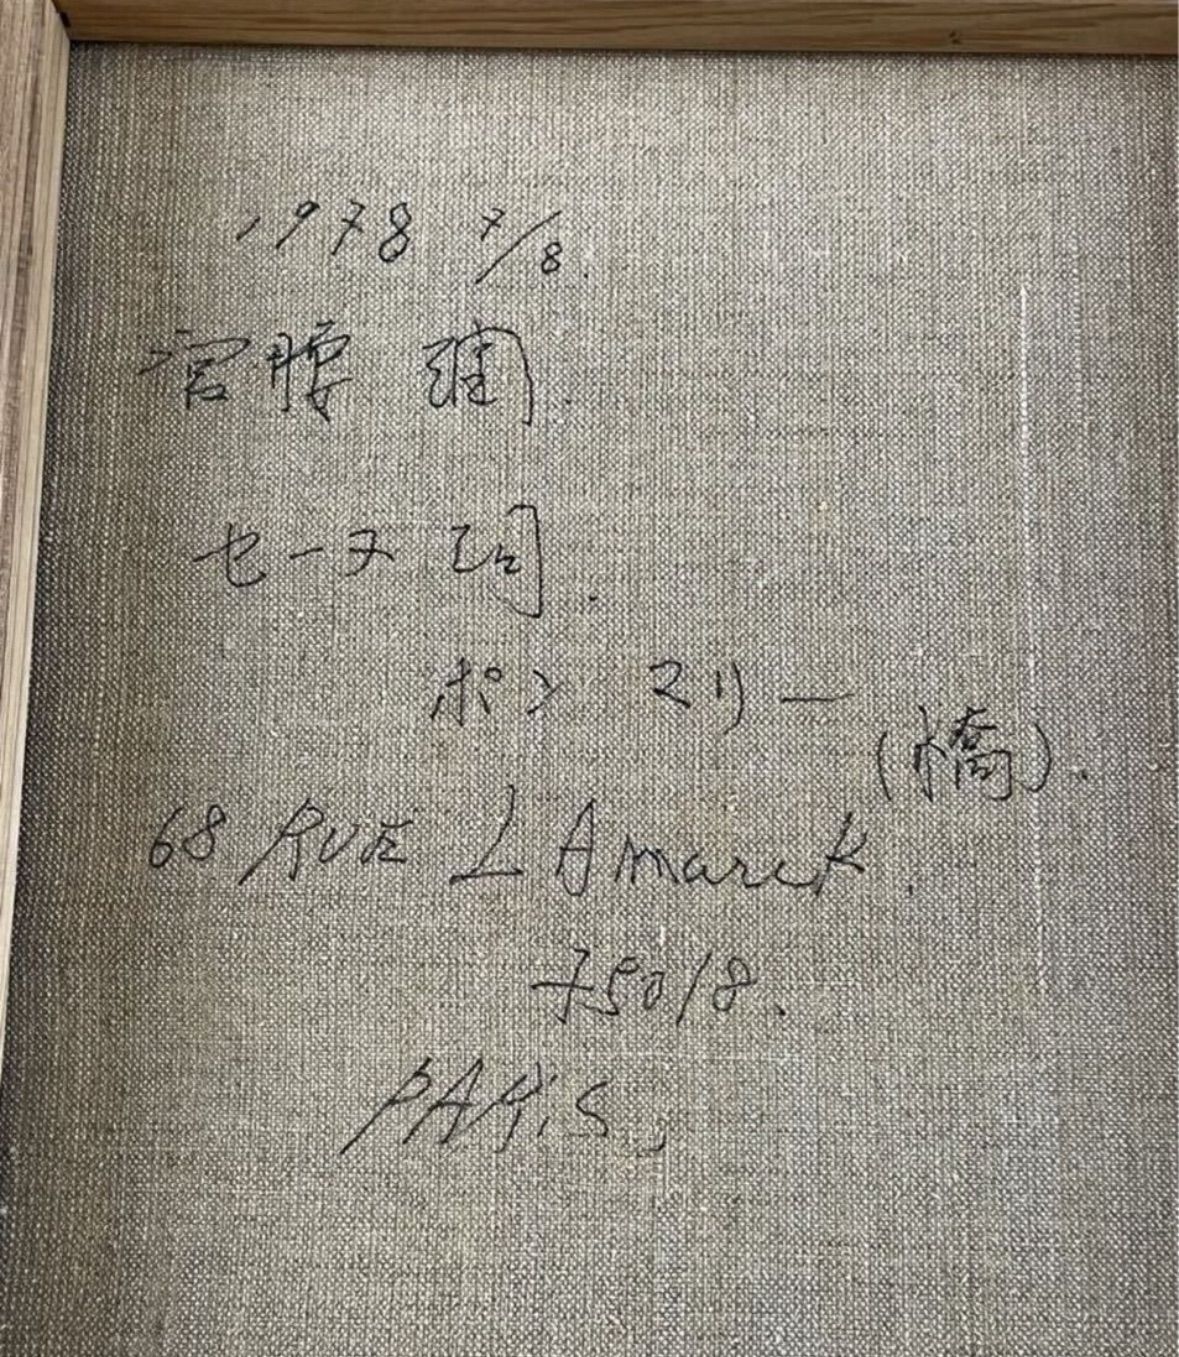 1978 7/8.
宮腰
セーヌ河.
ポン マリー
(橋).
68 RUE LAmarck.
75018.
PAris,